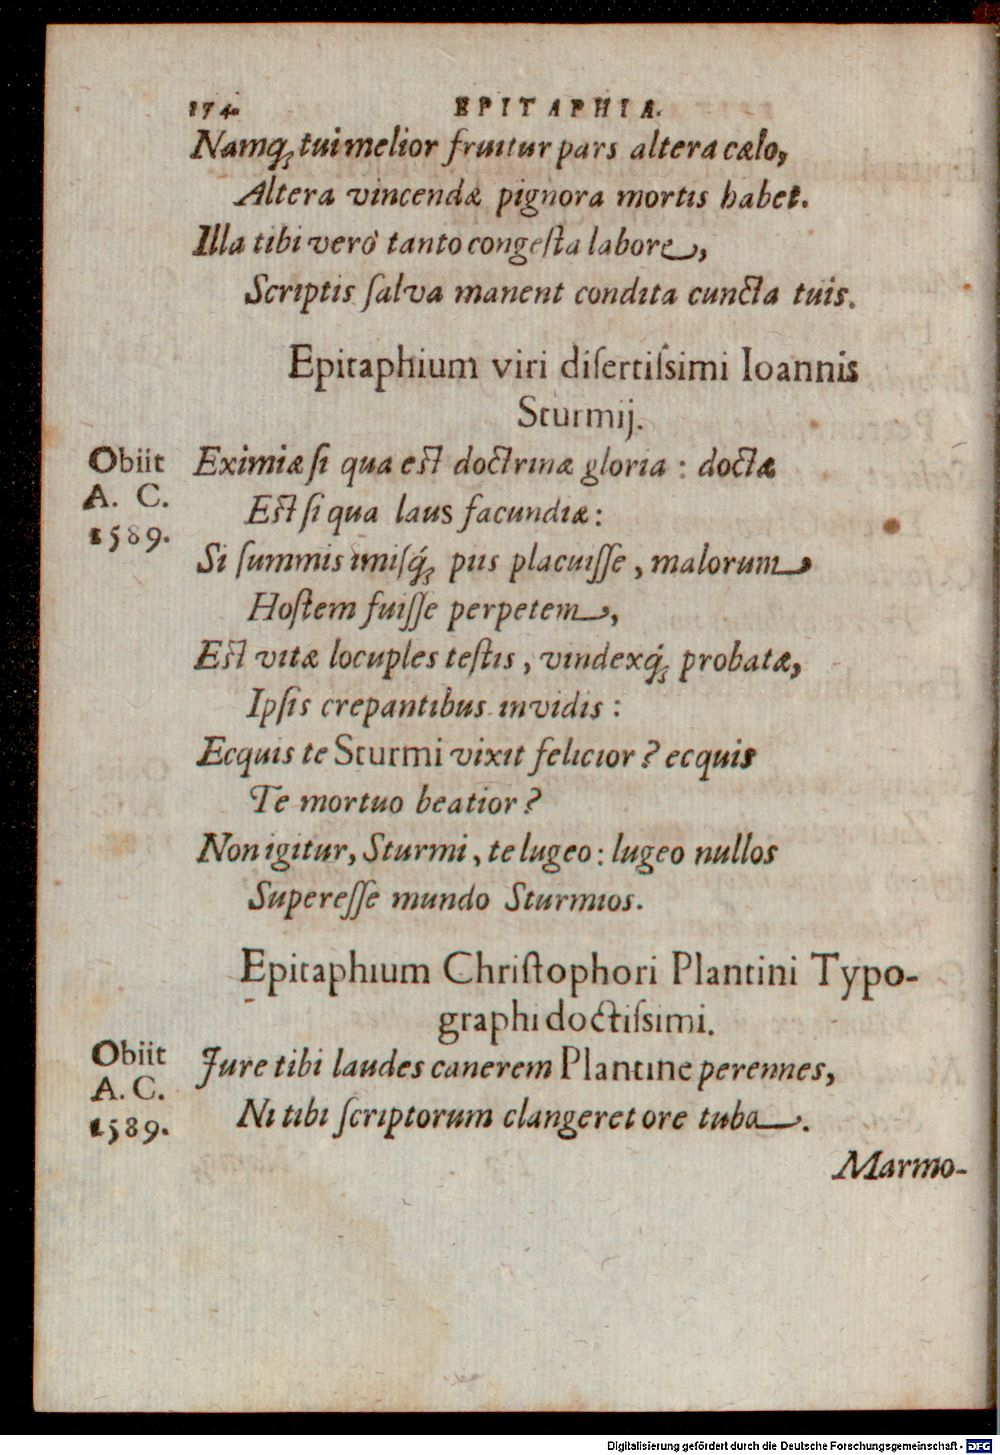 174. EPITAPHIA.
Namq́; tui melior fruitur pars altera cælo,
Altera vincendæ pignora mortis habet.
Illa tibi verò tanto congesta labore,
Scriptis ſalva manent condita cuncta tuis.
Epitaphium viri diſertiſsimi Ioannis
Sturmij.
Obiit
A. C.
1589.
Eximiæ ſi qua est doctrinæ gloria : doctæ
Est ſi qua laus facundiæ:
Si ſummis imiſq́; piis placuiſſe, malorum
Hoſtem fuiſſe perpetem,
Est vitæ locuples teſtis, vindexq́; probatæ,
Ipſis crepantibus invidis :
Ecquis te Sturmi vixit felicior? ecquis
Te mortuo beatior?
Non igitur, Sturmi, te lugeo: lugeo nullos
Supereſſe mundo Sturmios.
Epitaphium Chriſtophori Plantini Typo-
graphi doctiſsimi.
Obiit
A. C.
1589.
Jure tibi laudes canerem Plantine perennes,
Ni tibi ſcriptorum clangeret ore tuba.
Marmo-
Digitalisierung gefördert durch die Deutsche Forschungsgemeinschaft - DFG